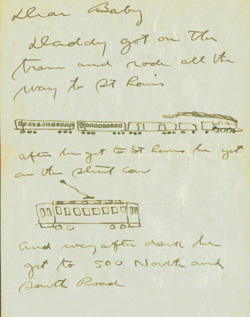 Dear Baby
Daddy got on the
train and rode all the
way to St Louis
after he got to St Louis he got
on the street car
And way after dark he
got to 500 North and
South Road